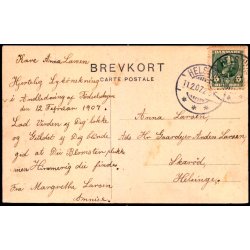 BREVKORT
CARTE POSTALE
Kære Anna Larsen
Hjertelig Lykønskning
i Anledning af Fødselsdagen
den 12 Februar 1907.
Lad Verden ej Dig lokke
og Geldet ej Dig blende
gid at Du Blomsten plukke
men Himmerig die findes
Fra Margrethe Larsen
HELSI
11.2.07
Anna Larsen
Adr Hr Gaardejer Anders Larsen
Skaröd
Helsinge